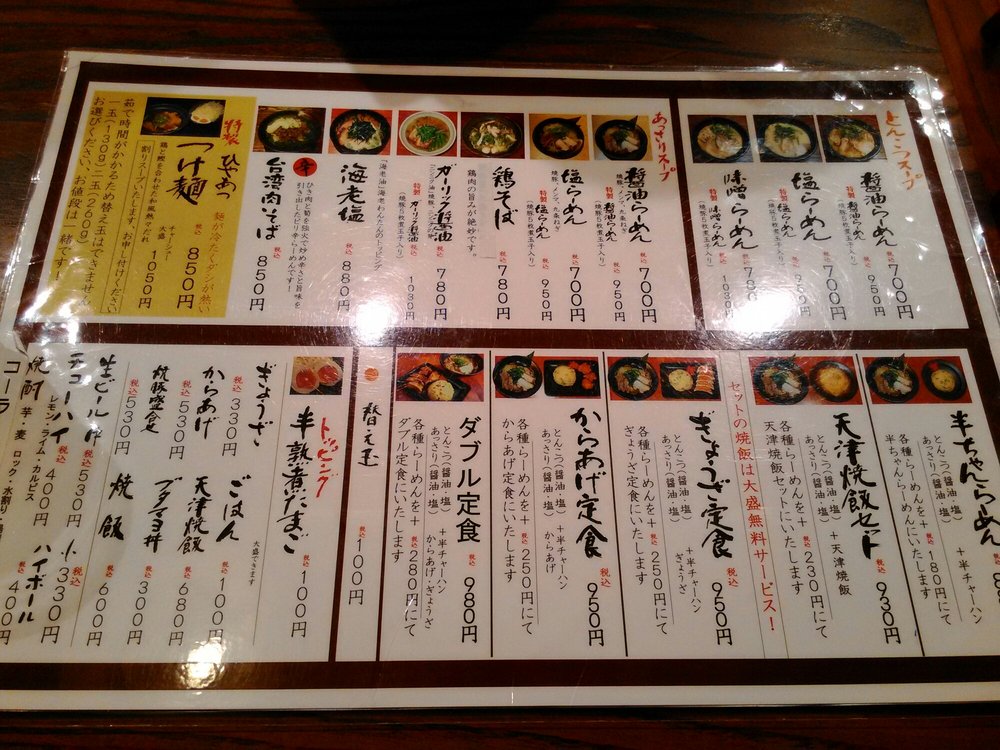 とんこつスープ
醤油らーめん
税込700円
特製 醤油らーめん
税込950円
(焼豚5枚煮玉子入り)
塩らーめん
税込700円
特製 塩らーめん
税込950円
(焼豚5枚煮玉子入り)
味噌らーめん
税込780円
特製 味噌らーめん
税込1030円
(焼豚5枚煮玉子入り)
あっさりスープ
醤油らーめん
税込700円
焼豚、メンマ、九条ねぎ
特製 醤油らーめん
税込950円
(焼豚5枚煮玉子入り)
塩らーめん
税込700円
焼豚、メンマ、九条ねぎ
特製 塩らーめん
税込950円
(焼豚5枚煮玉子入り)
鶏そば
税込780円
鶏肉の旨みが絶妙です。
ガーリック醤油
税込780円
特製 ガーリック醤油
税込1030円
(焼豚5枚煮玉子入り)
海老塩
税込880円
(海老油、海老わんたんのトッピング)
辛 台湾肉そば
税込850円
ひき肉と菊を強火で炒め辛さと旨味を
引き出したピリ辛らーめんです!
特製 ひやあつ
つけ麺
税込850円
麺が冷たくダシが熱い
チャーシュー
大盛
1050円
鶏と鰹を合わせた和風熱々だれ
割りスープいたします。お申し付けください
茹で時間がかかるため替え玉はできません
一玉(130g)二玉(260g)
お選びください、お値段は一緒です。
半ちゃんらーめん
とんこつ(醤油・塩)
あっさり(醤油・塩)
+半チャーハン
各種らーめんを+税込180円にて
半ちゃんらーめんにいたします
天津焼飯セット
税込930円
とんこつ(醤油・塩)
あっさり(醤油・塩)
+天津焼飯
各種らーめんを+税込230円にて
天津焼飯セットにいたします
セットの焼飯は大盛無料サービス!
ぎょうざ定食
税込950円
とんこつ(醤油・塩)
あっさり(醤油・塩)
+半チャーハン
ぎょうざ
各種らーめんを+税込250円にて
ぎょうざ定食にいたします
からあげ定食
税込950円
とんこつ(醤油・塩)
あっさり(醤油・塩)
+半チャーハン
からあげ
各種らーめんを+税込250円にて
からあげ定食にいたします
ダブル定食
税込980円
とんこつ(醤油・塩)
あっさり(醤油・塩)
+半チャーハン
からあげ・ぎょうざ
各種らーめんを+税込280円にて
ダブル定食にいたします
替え玉
税込100円
トッピング
半熟煮たまご
税込100円
ぎょうざ
税込330円
からあげ
税込530円
焼豚盛合せ
税込530円
ごはん
税込100円
大盛できます
天津焼飯
税込680円
ブタマヨ丼
税込300円
焼飯
税込600円
生ビール 中
税込530円
小 税込330円
チューハイ
税込400円
レモン・ライム・カルピス
ハイボール
税込400円
焼酎
芋・麦 ロック・水割り
コーラ